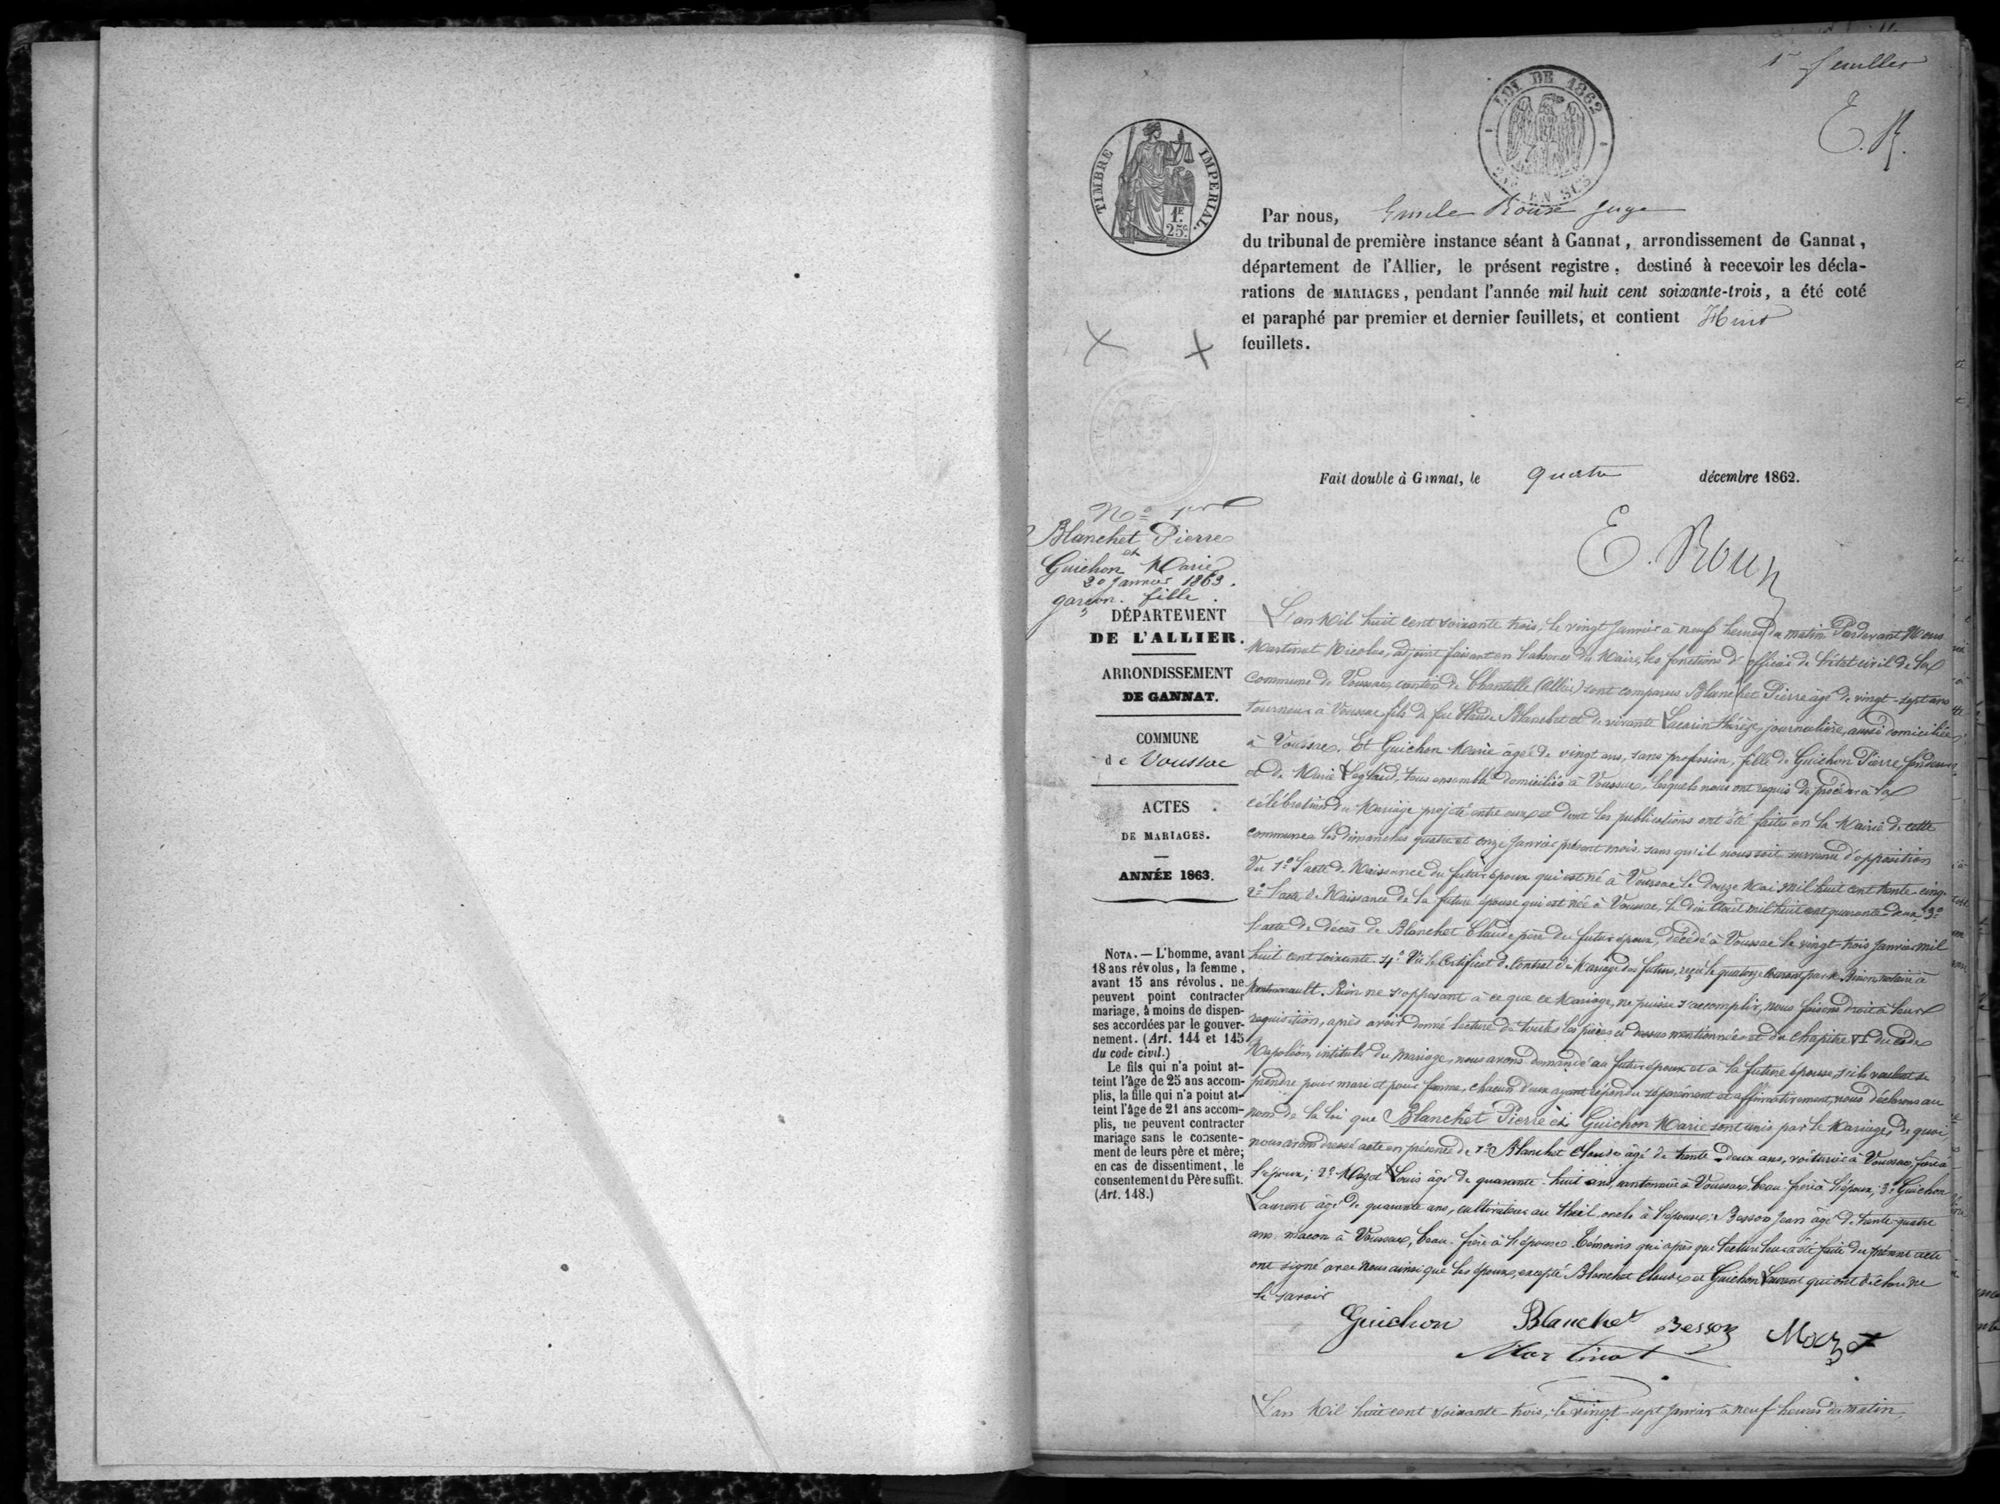 1er feuillet
E. R.
TIMBRE IMPERIAL.
1F.
25c.
LOI DE 1862
EN SUS
Par nous, Emile Roux Juge
du tribunal de première instance séant à Gannat, arrondissement de Gannat,
département de l'Allier, le présent registre, destiné à recevoir les décla-
rations de MARIAGES, pendant l'année mil huit cent soixante-trois, a été coté
et paraphé par premier et dernier feuillets, et contient Huit
feuillets.
Fait double à Gannat, le quatre décembre 1862.
E. Roux
No 1er
Blanchet Pierre
et
Guichon Marie
20 Janvier 1863.
garçon. fille.
DÉPARTEMENT
DE L'ALLIER.
ARRONDISSEMENT
DE GANNAT.
COMMUNE
de Voussac
ACTES
DE MARIAGES.
ANNÉE 1863.
NOTA. — L'homme, avant
18 ans révolus, la femme,
avant 15 ans révolus, ne
peuvent point contracter
mariage, à moins de dispen-
ses accordées par le gouver-
nement. (Art. 144 et 145
du code civil.)
Le fils qui n'a point at-
teint l'âge de 25 ans accom-
plis, la fille qui n'a point at-
teint l'âge de 21 ans accom-
plis, ne peuvent contracter
mariage sans le consente-
ment de leurs père et mère;
en cas de dissentiment, le
consentement du Père suffit.
(Art. 148.)
L'an Mil huit cent soixante trois, le vingt Janvier à neuf heures du matin Pardevant Nous
Martinat Nicolas, adjoint faisant en l'absence du Maire, les fonctions d'officier de l'état civil de la
Commune de Voussac, canton de Chantelle (Allier) sont comparus Blanchet Pierre âgé de vingt-sept ans
tourneur à Voussac, fils de feu Claude Blanchet et de vivante Lacarin Thérèse, journalière, aussi domiciliée
à Voussac. Et Guichon Marie âgée de vingt ans, sans profession, fille de Guichon Pierre,
et de Marie tous ensemble domiciliés à Voussac, lesquels nous ont requis de procéder à la
célébration du Mariage projeté entre eux et dont les publications ont été faites en la Mairie de cette
commune les dimanches quatre et onze Janvier présent mois sans qu'il nous soit survenu d'opposition
Vu 1o l'acte de Naissance du futur époux qui est né à Voussac le douze Mai Mil huit cent trente-cinq.
2o l'acte de Naissance de la future épouse qui est née à Voussac, le dix Août mil huit cent quarante-deux, 3o
l'acte de décès de Blanchet Claude père du futur époux, décédé à Voussac le vingt trois Janvier mil
huit cent soixante. 4o Vu le Certificat de Contrat de Mariage des futurs, reçu le quatorze courant par Me notaire à
Rien ne s'opposant à ce que ce Mariage, ne puisse s'accomplir, nous faisons droit à leur
requisition, après avoir donné lecture de toutes les pièces ci dessus mentionnées et du Chapitre VI du code
Napoléon, intitulé du mariage, nous avons demandé au futur époux et à la future épouse s'ils veulent se
prendre pour mari et pour femme, chacun d'eux ayant répondu séparément et affirmativement, nous déclarons au
nom de la loi que Blanchet Pierre et Guichon Marie sont unis par le Mariage, de quoi
nous avons dressé acte en présence de 1o Blanchet Claude âgé de trente-deux ans, voiturier à Voussac, frère à
l'époux; 2o Mazot Louis âgé de quarante-huit ans, cantonnier à Voussac, beau frère à l'époux; 3o Guichon
Laurent âgé de quarante ans, cultivateur au Theil, oncle à l'épouse; Besson Jean âgé de trente-quatre
ans maçon à Voussac, beau-frère à l'épouse Témoins qui après que lecture leur a été faite du présent acte
ont signé avec nous ainsi que les époux, excepté Blanchet Claude et Guichon Laurent qui ont déclaré ne
le savoir
Guichon Blanchet Besson Mazot
Martinat
L'an Mil huit cent soixante trois, le vingt-sept Janvier à neuf heures du matin,